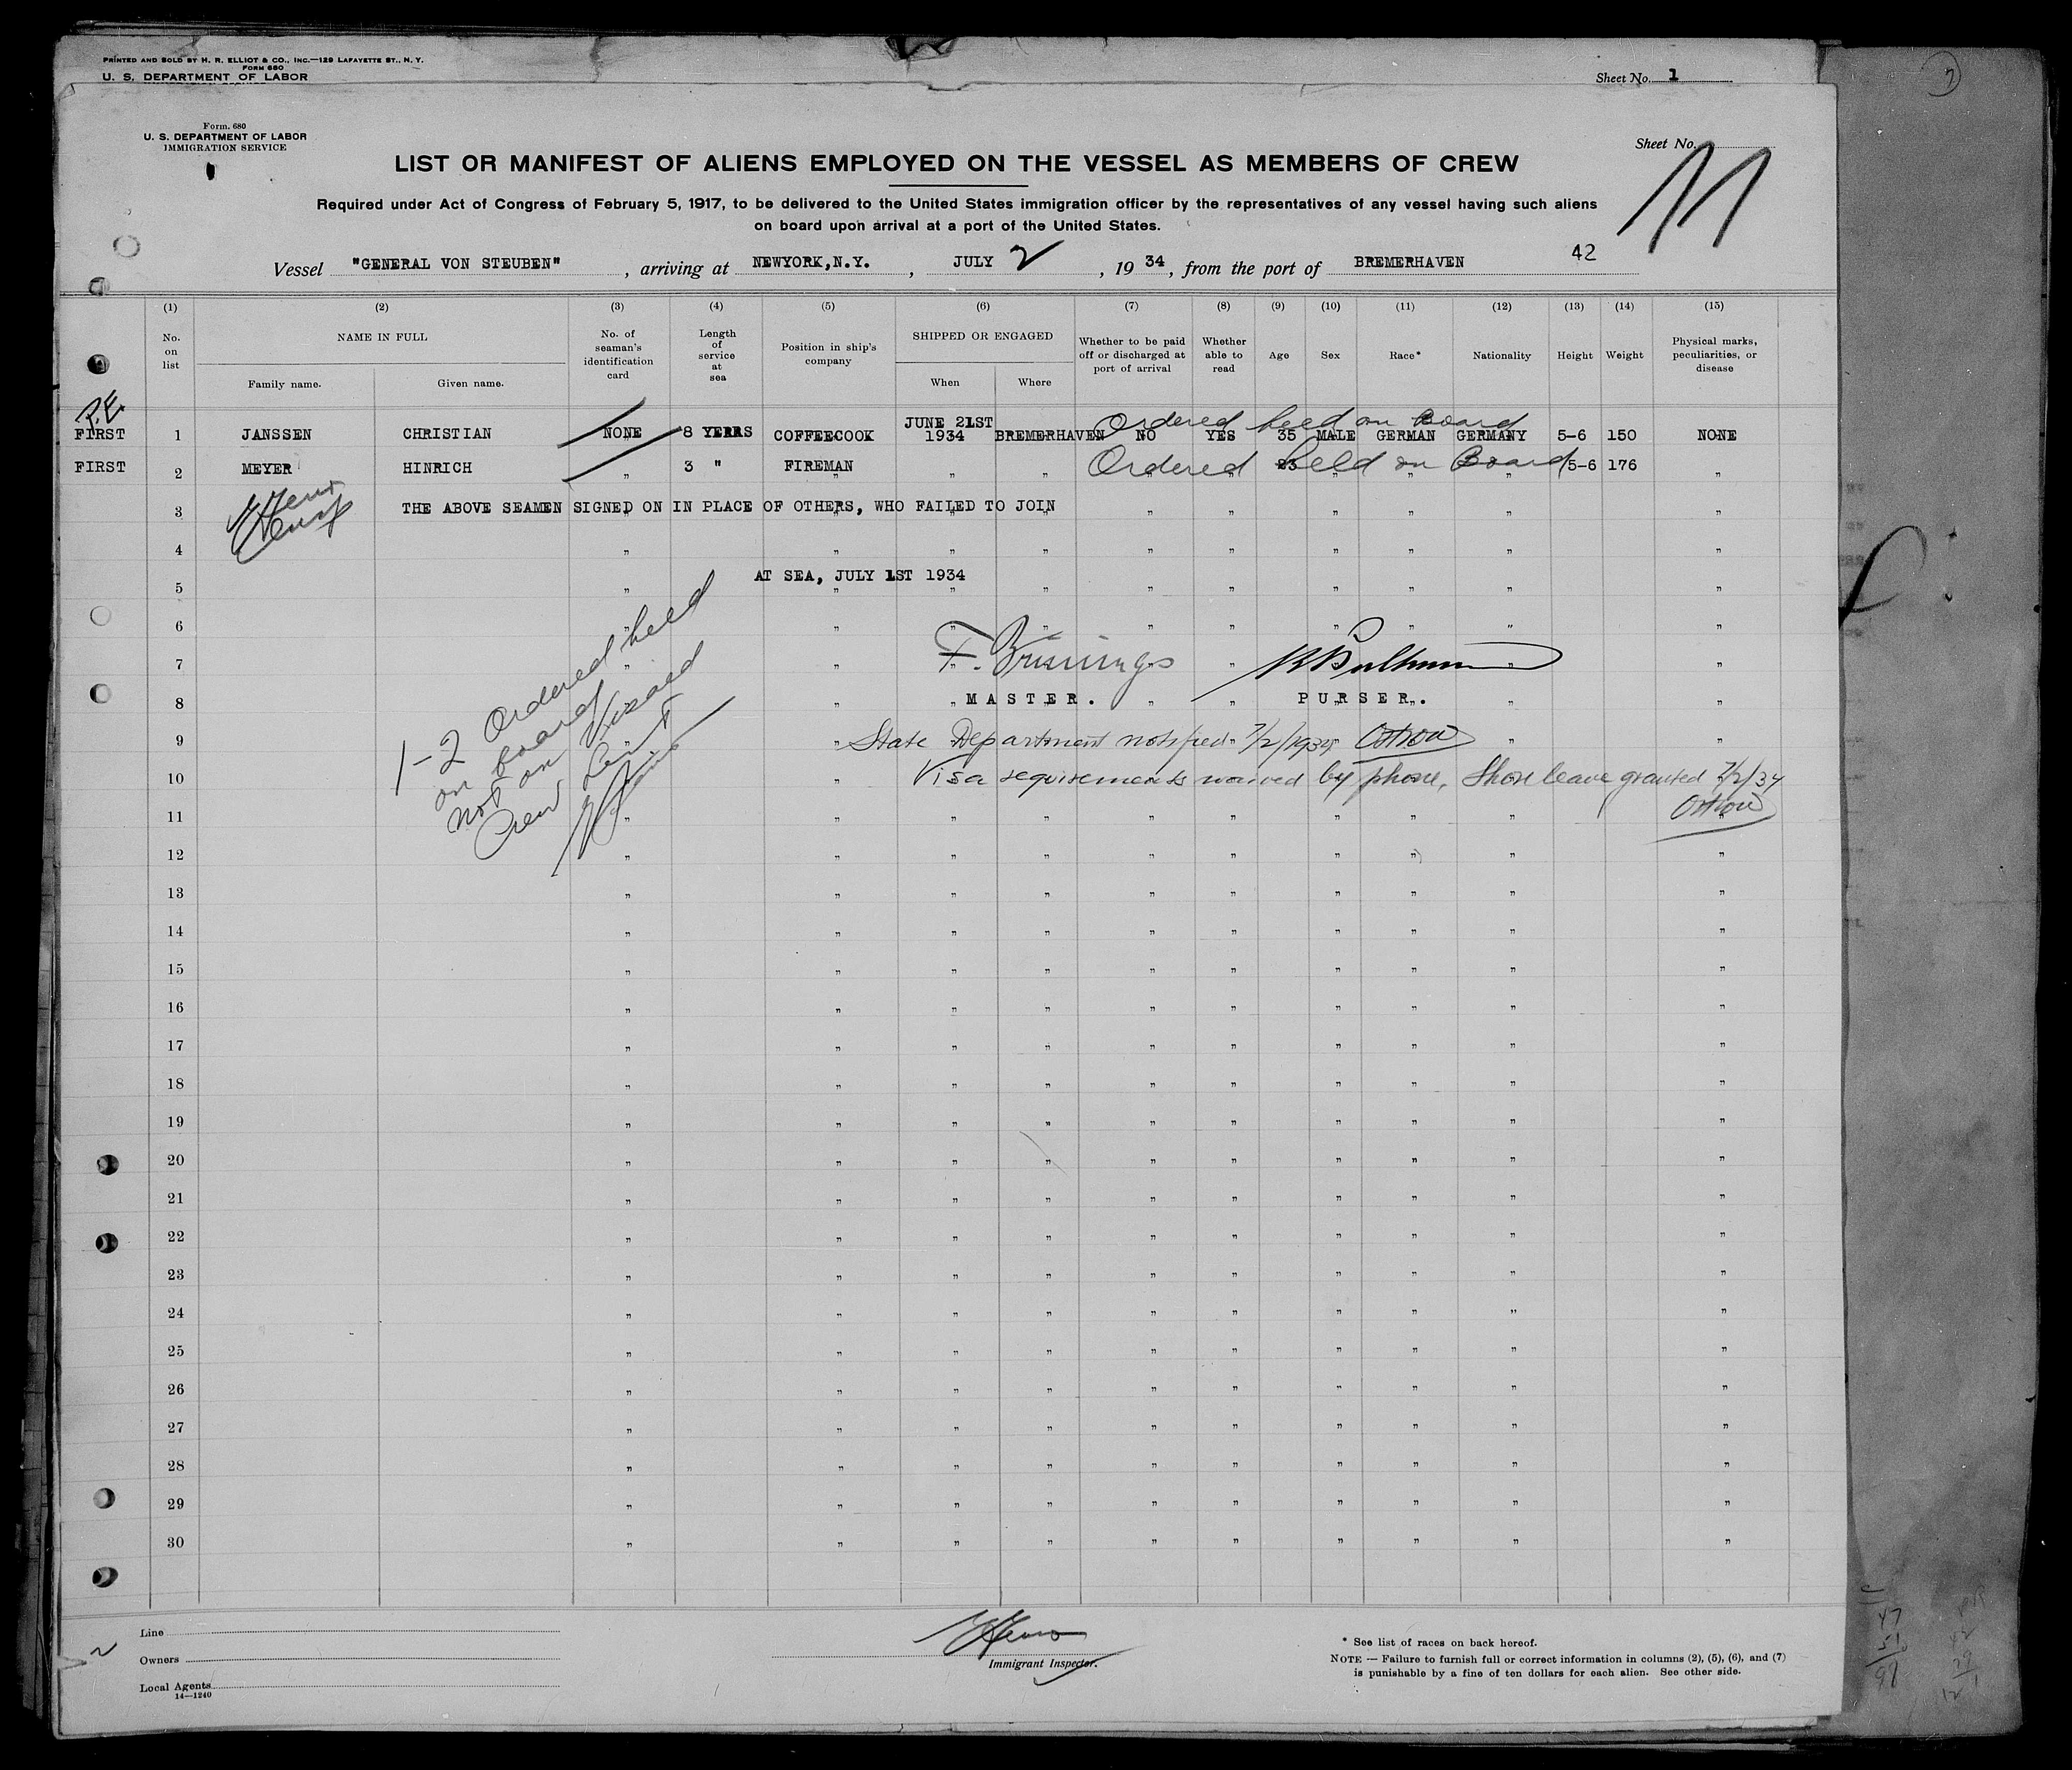 PRINTED AND SOLD BY H. R. ELLIOT & CO., INC.—129 LAFAYETTE ST., N. Y.
FORM 680
U. S. DEPARTMENT OF LABOR
Sheet No. 1
Form. 680
U. S. DEPARTMENT OF LABOR
IMMIGRATION SERVICE
Sheet No.
LIST OR MANIFEST OF ALIENS EMPLOYED ON THE VESSEL AS MEMBERS OF CREW
Required under Act of Congress of February 5, 1917, to be delivered to the United States immigration officer by the representatives of any vessel having such aliens
on board upon arrival at a port of the United States.
42
Vessel "GENERAL VON STEUBEN", arriving at NEWYORK,N.Y., JULY 2, 1934, from the port of BREMERHAVEN
(1) (2) (3) (4) (5) (6) (7) (8) (9) (10) (11) (12) (13) (14) (15)
No. on list
NAME IN FULL
Family name. Given name.
No. of seaman's identification card
Length of service at sea
Position in ship's company
SHIPPED OR ENGAGED
When Where
Whether to be paid off or discharged at port of arrival
Whether able to read
Age
Sex
Race*
Nationality
Height
Weight
Physical marks, peculiarities, or disease
P.E.
Ordered held on Board
FIRST 1 JANSSEN CHRISTIAN NONE 8 YEARS COFFEECOOK JUNE 21ST 1934 BREMERHAVEN NO YES 35 MALE GERMAN GERMANY 5-6 150 NONE
FIRST 2 MEYER HINRICH " 3 " FIREMAN " " " " " " " 5-6 176 "
Ordered held on Board
3 THE ABOVE SEAMEN SIGNED ON IN PLACE OF OTHERS, WHO FAILED TO JOIN
4
5 AT SEA, JULY 1ST 1934
6
7
8 MASTER. PURSER.
9 State Department notified 7/2/1934
10 Visa requirements waived by phone, Shore leave granted 7/2/34
1-2 Ordered held
on board
not on Visaed
Crew List
11
12
13
14
15
16
17
18
19
20
21
22
23
24
25
26
27
28
29
30
Line
Owners
Local Agents
14—1240
Immigrant Inspector.
* See list of races on back hereof.
NOTE — Failure to furnish full or correct information in columns (2), (5), (6), and (7)
is punishable by a fine of ten dollars for each alien. See other side.